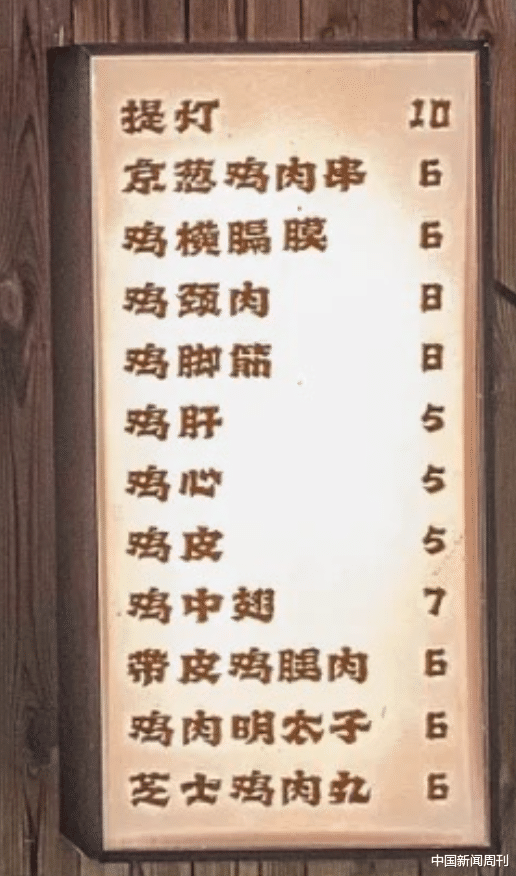 提灯 10
京葱鸡肉串 6
鸡横膈膜 6
鸡颈肉 8
鸡脚筋 8
鸡肝 5
鸡心 5
鸡皮 5
鸡中翅 7
带皮鸡腿肉 6
鸡肉明太子 6
芝士鸡肉丸 6
中国新闻周刊